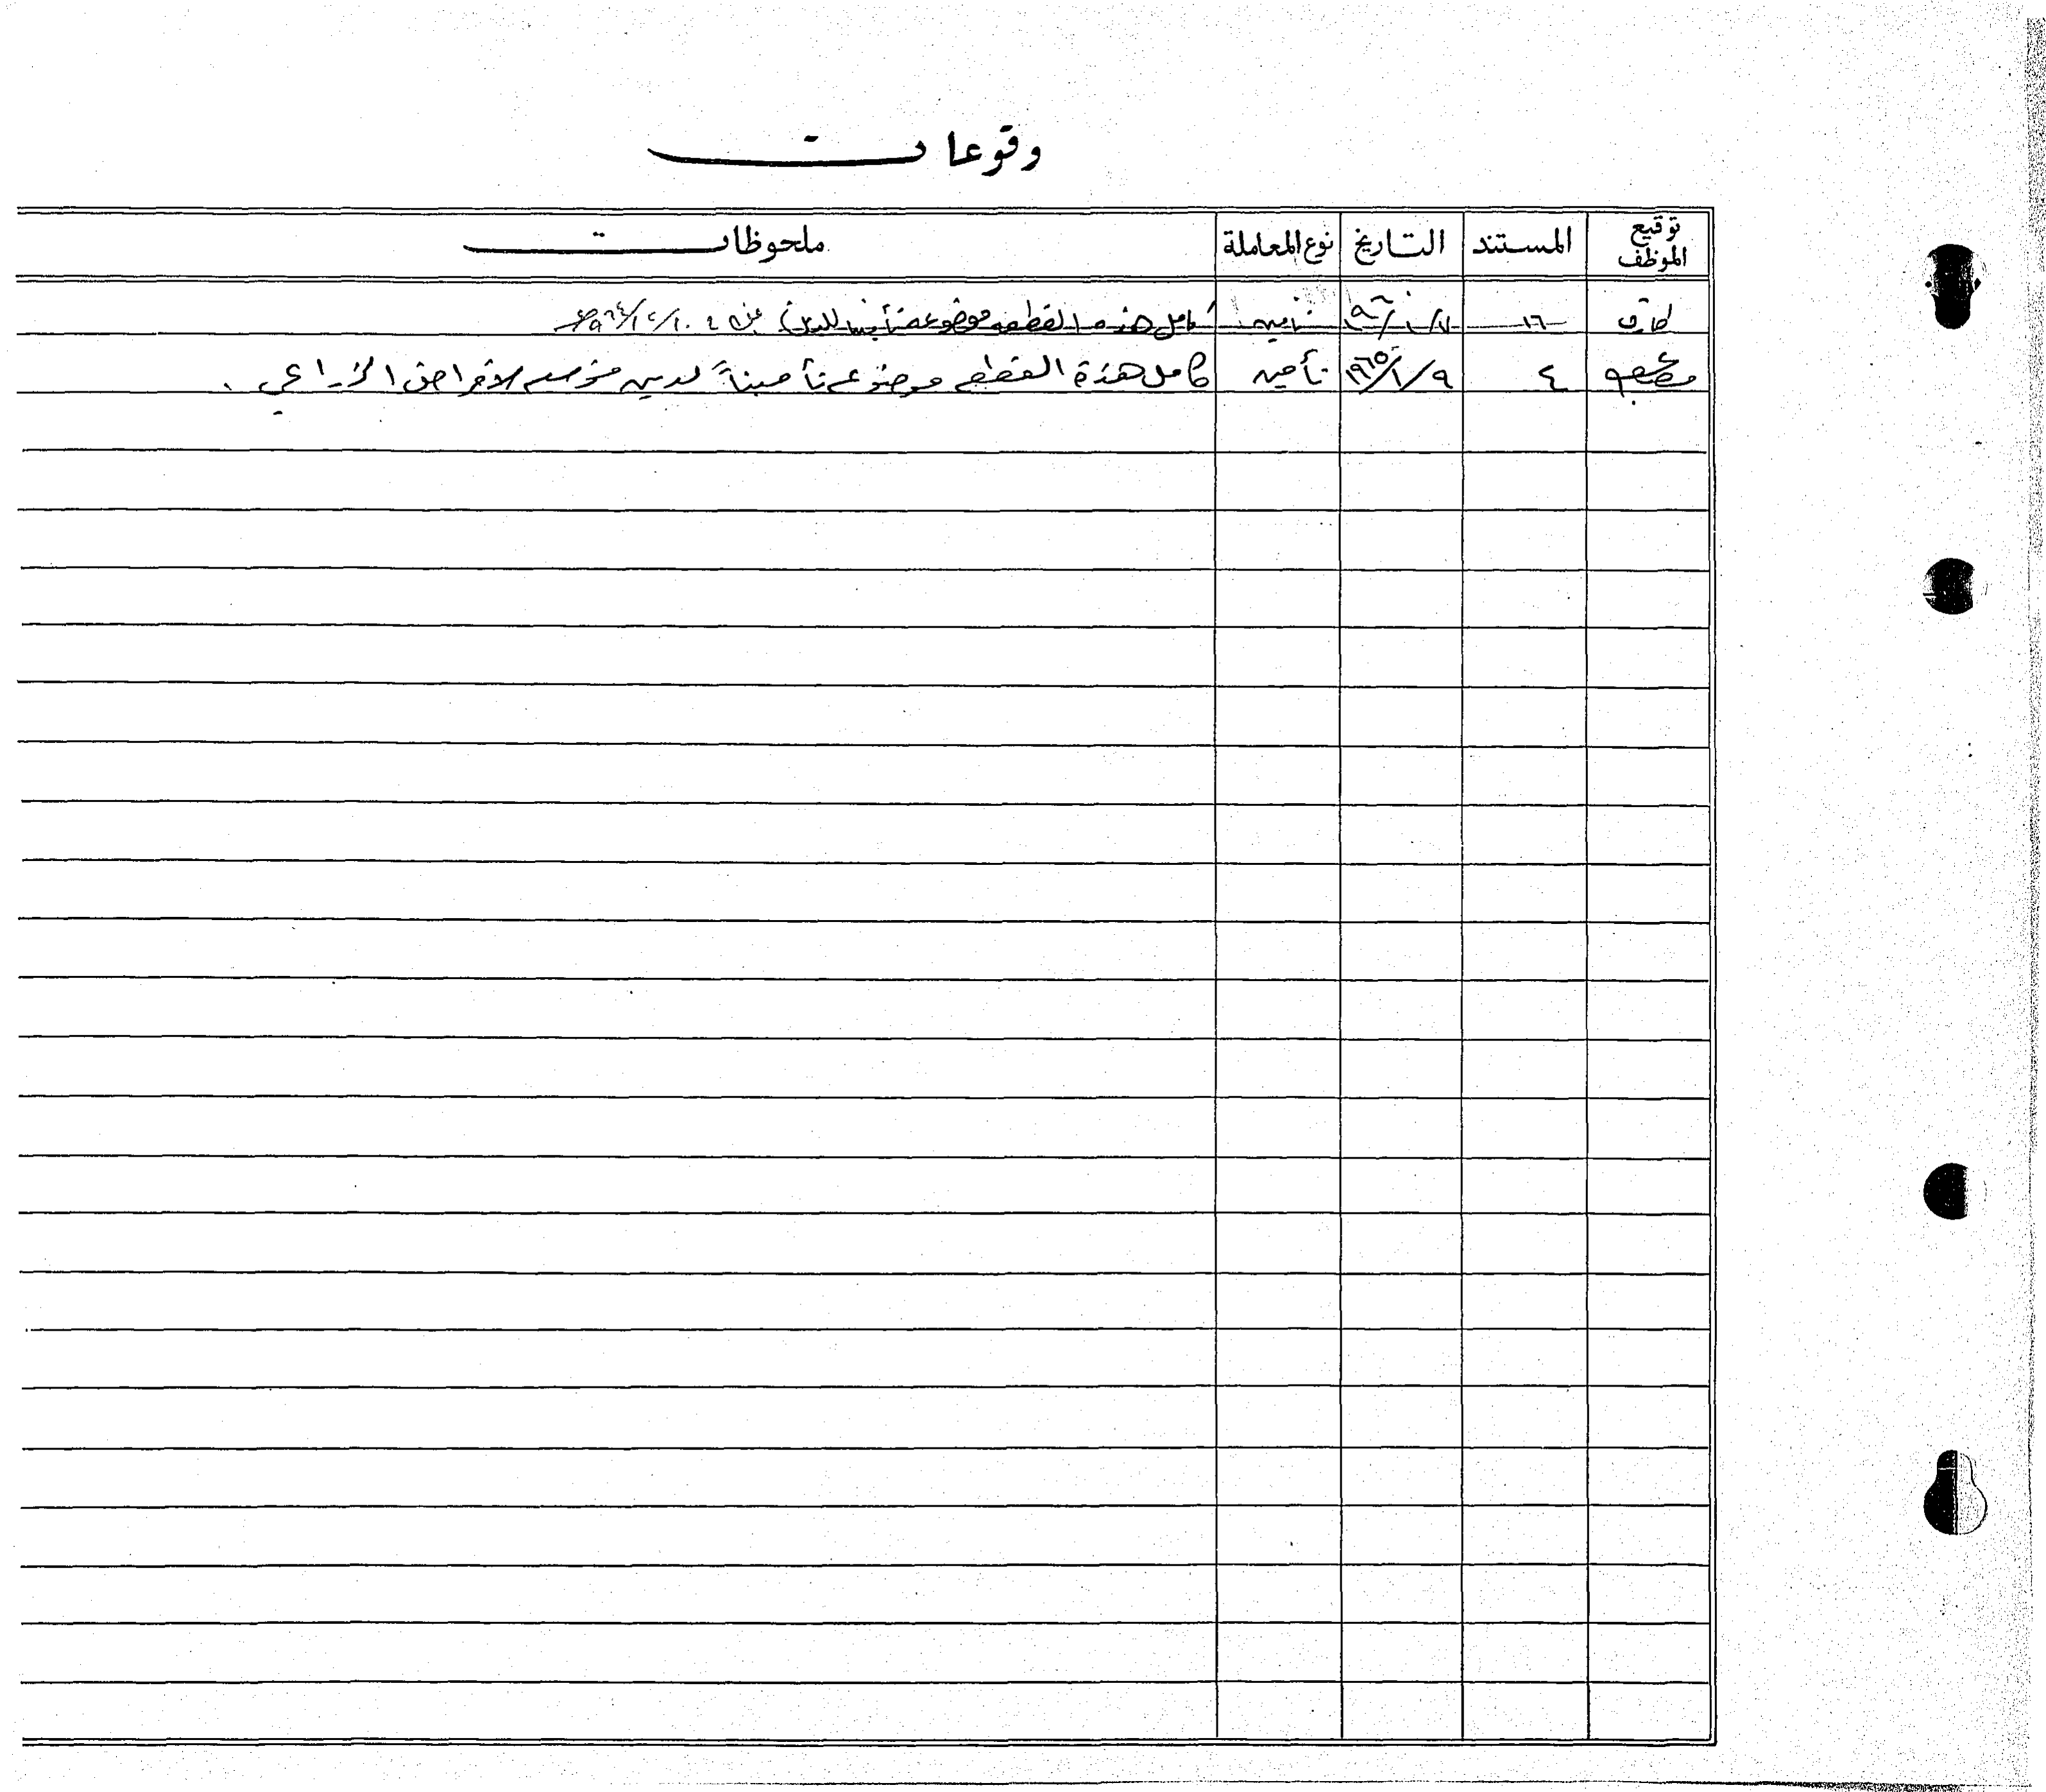 وقوعات
توقيع الموظف المستند التاريخ نوع المعاملة ملحوظات
طارق ١٦ تأمين كامل هذه القطعه موضوعه تأمينا للدين
٤ ١٩٦٥/١/٩ تأمين كامل هذة القطعه موضوعه تأميناً لدين مؤسسه الاقراض الزراعي .